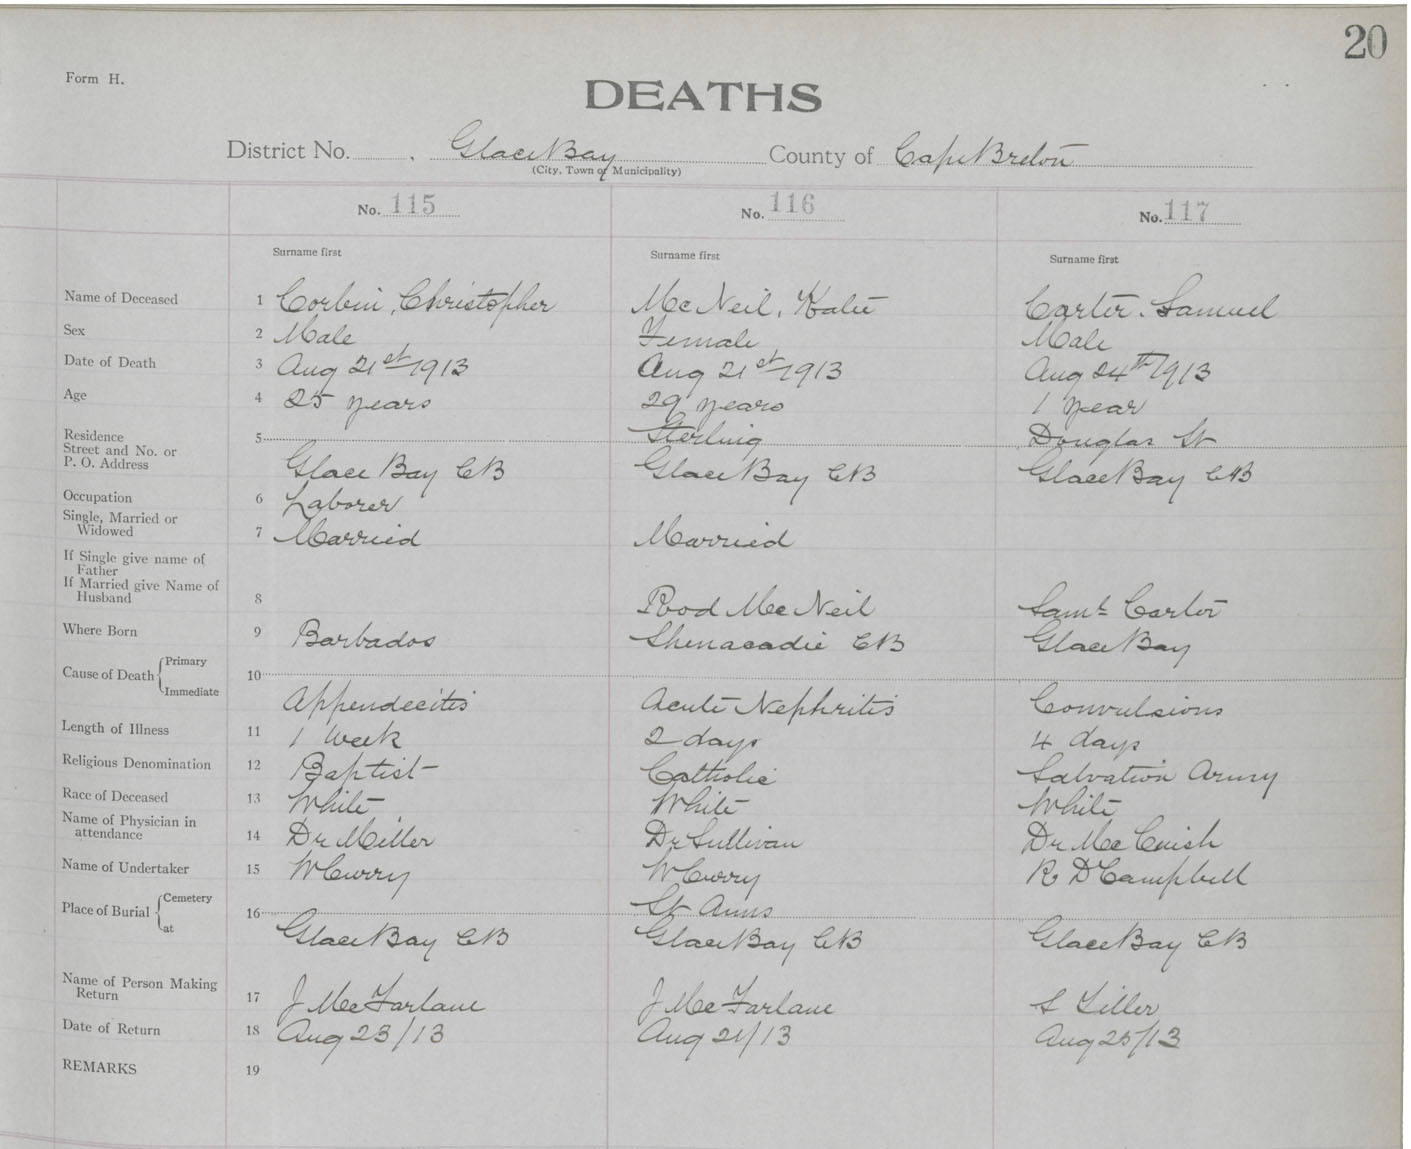 20
Form H.
DEATHS
District No. Glace Bay County of Cape Breton
(City, Town or Municipality)
No. 115 No. 116 No. 117
Surname first Surname first Surname first
Name of Deceased 1 Corbin, Christopher McNeil, Katie Carter, Samuel
Sex 2 Male Female Male
Date of Death 3 Aug 21st 1913 Aug 21st 1913 Aug 24th 1913
Age 4 25 years 29 years 1 year
Residence 5 Sterling Douglas St
Street and No. or
P. O. Address Glace Bay CB Glace Bay CB Glace Bay CB
Occupation 6 Laborer
Single, Married or
Widowed 7 Married Married
If Single give name of
Father
If Married give Name of
Husband 8 Rod McNeil Saml Carter
Where Born 9 Barbados Shenacadie CB Glace Bay
Cause of Death Primary 10
Immediate Appendecitis Acute Nephritis Convulsions
Length of Illness 11 1 Week 2 days 4 days
Religious Denomination 12 Baptist Catholic Salvation Army
Race of Deceased 13 White White White
Name of Physician in
attendance 14 Dr Miller Dr Sullivan Dr McCuish
Name of Undertaker 15 W Curry W Curry R D Campbell
Place of Burial Cemetery 16 St Anns
at Glace Bay CB Glace Bay CB Glace Bay CB
Name of Person Making
Return 17 J McFarlane J McFarlane S
Date of Return 18 Aug 23/13 Aug 21/13 Aug 25/13
REMARKS 19